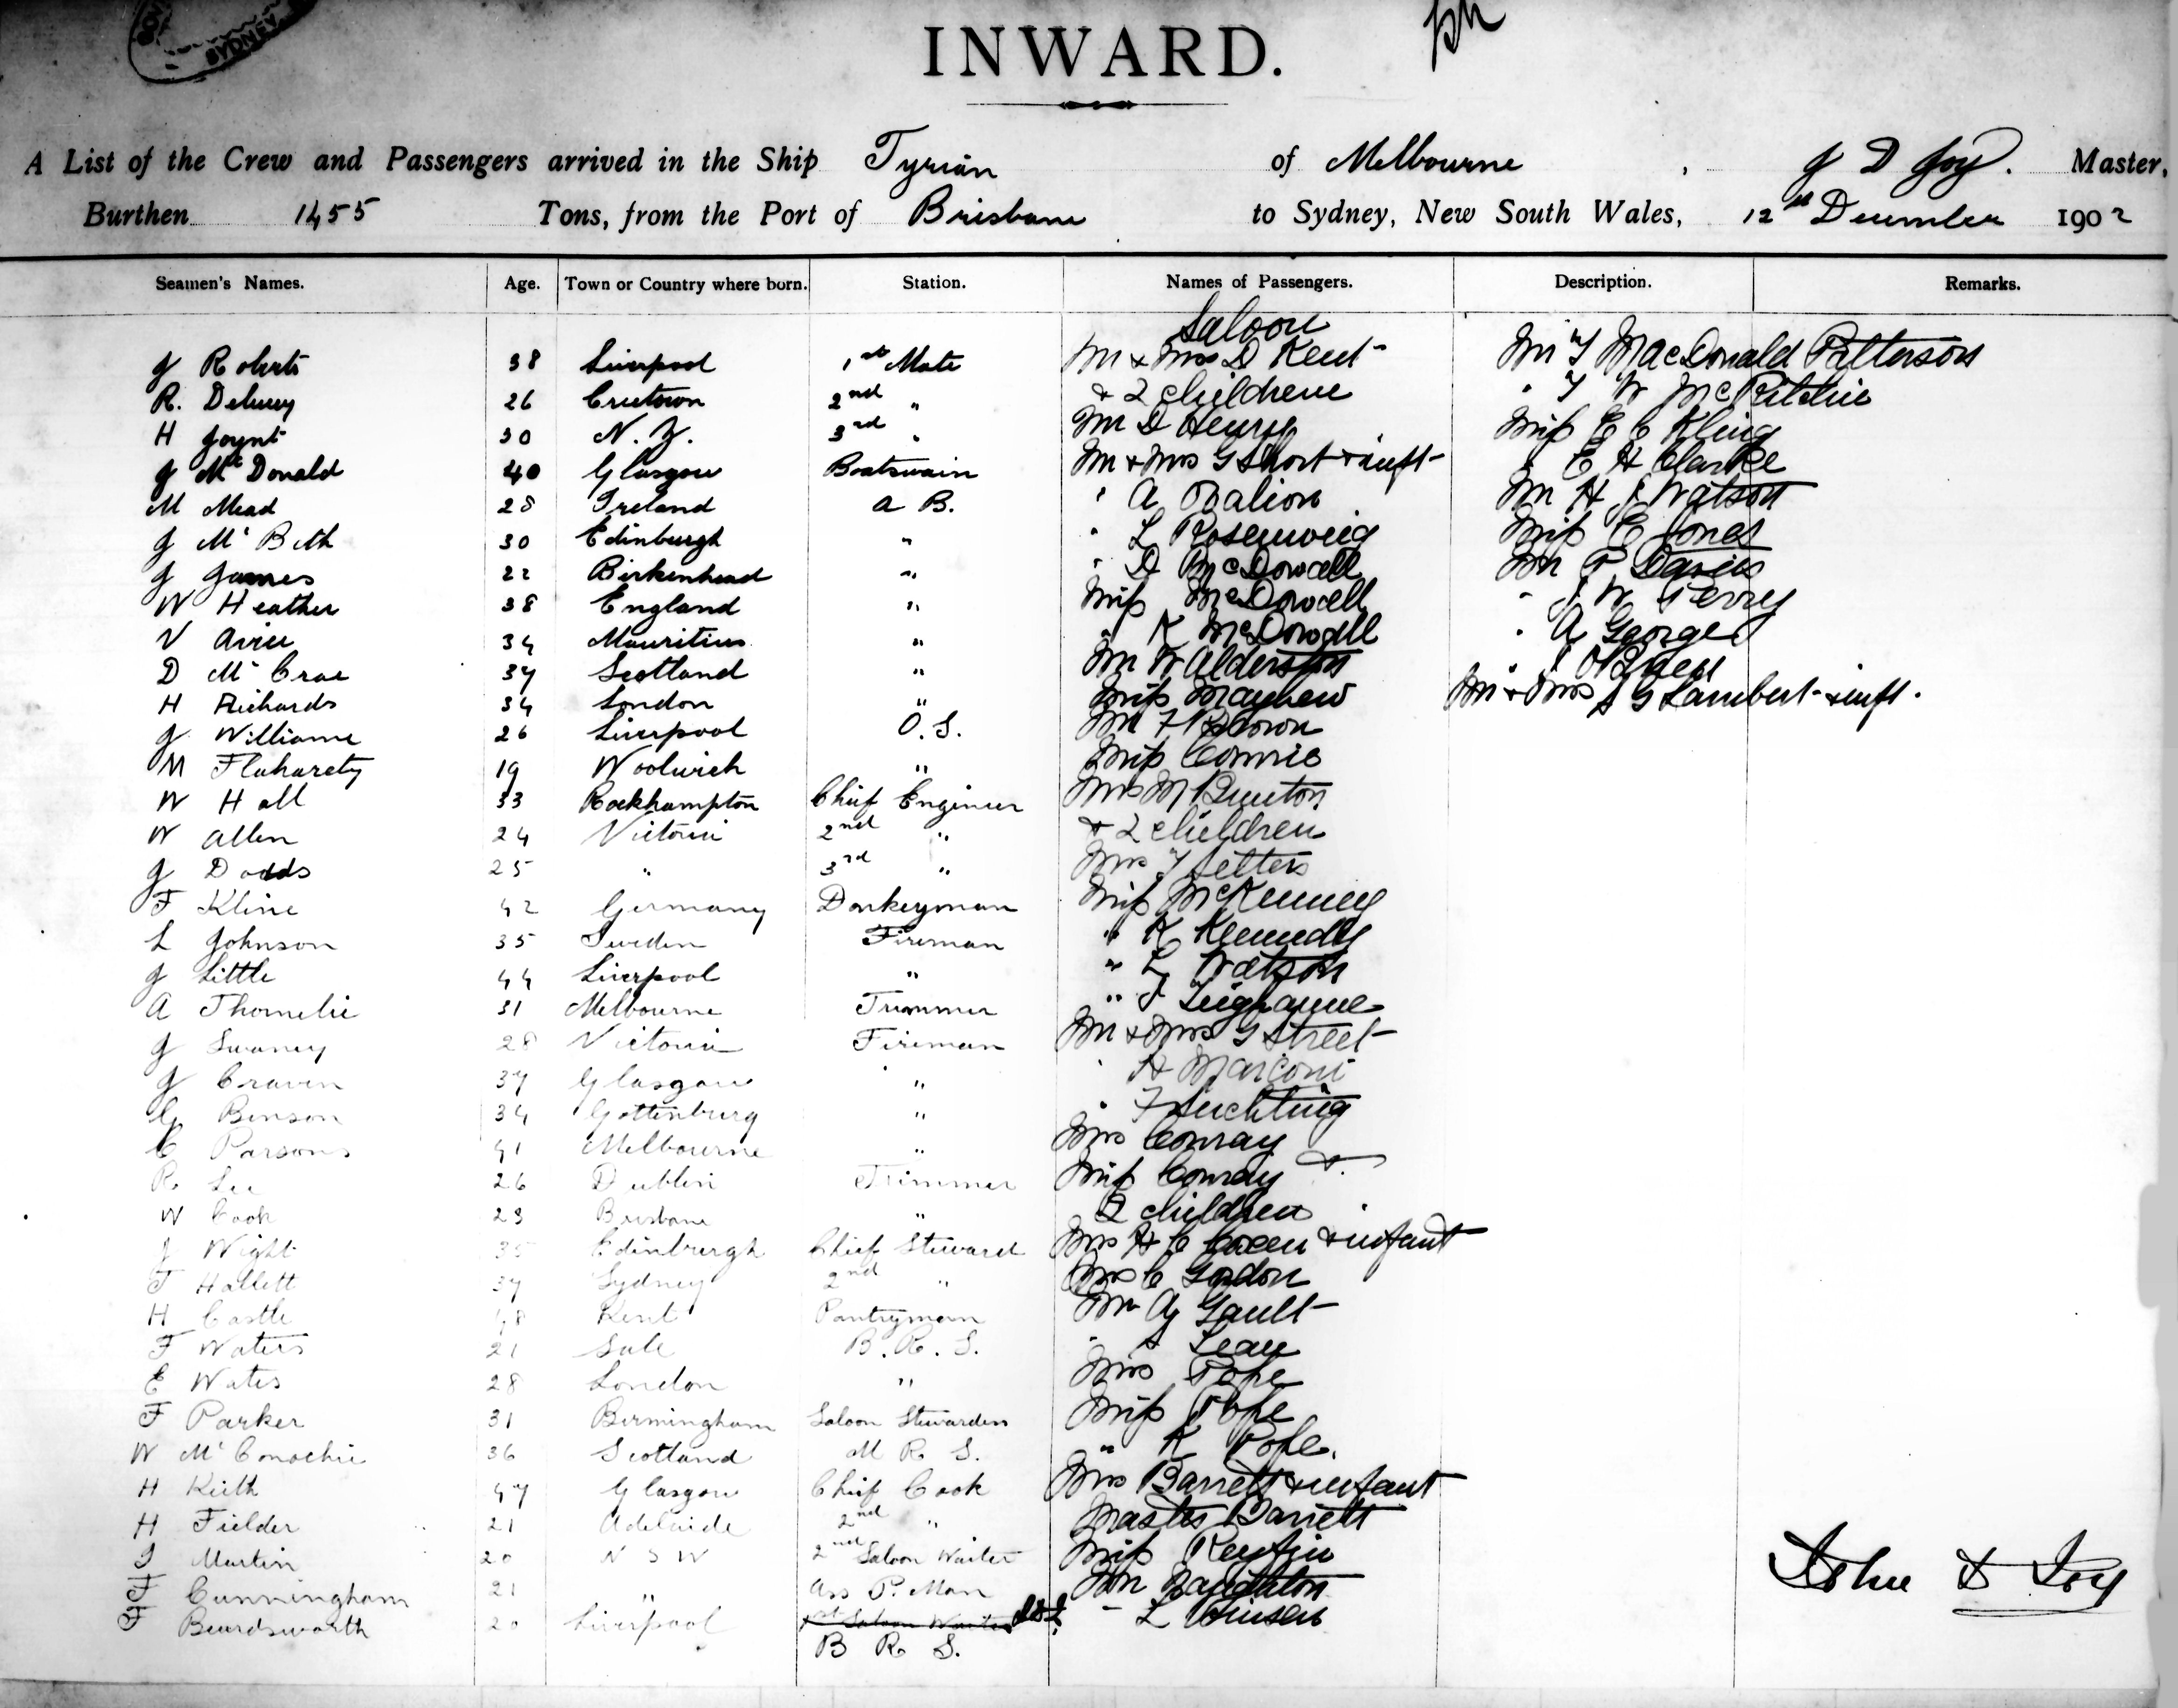 SYDNEY
INWARD.
A List of the Crew and Passengers arrived in the Ship Tyrian of Melbourne, J D Joy. Master,
Burthen 1455 Tons, from the Port of Brisbane to Sydney, New South Wales, 12th December 1902
Seamen's Names. Age. Town or Country where born. Station. Names of Passengers. Description. Remarks.
Saloon
J Roberts 38 Liverpool 1st Mate Mr & Mrs D Kent Mr T MacDonald Patterson
R. Delury 26 Creetown 2nd " & 2 children " T W McRitchie
H Joynt 30 N. Z. 3rd " Mr D Henry Miss E C Kling
J McDonald 40 Glasgow Boatswain Mr & Mrs G Short & inft " E H Clarke
M Mead 28 Ireland A B. " A Mr H J Watson
J Mc Beth 30 Edinburgh " " L Rosenweig Miss E Jones
J James 22 Birkenhead " " D McDowell Mr P Davies
W Heather 38 England " Miss McDowell " J W Perry
V 34 Mauritius " " K McDowell " A George
D Mc Crae 37 Scotland " Mr W Alderston " J O'Brien
H Richards 34 London " Miss Mayhew Mr & Mrs A G Lambert & inft.
J Williams 26 Liverpool O. S. Mr F Brown
M Flaharety 19 Woolwich " Miss Connie
W Hall 33 Rockhampton Chief Engineer Mrs M Bunton
W Allen 24 Victoria 2nd " & 2 children
J Dodds 25 " 3rd " Mrs T
F Kline 42 Germany Donkeyman Miss McKenney
L Johnson 35 Sweden Fireman " K Kennedy
J Little 44 Liverpool " " L Watson
A Thomelie 31 Melbourne Trimmer "
J Swaney 28 Victoria Fireman Mr & Mrs G Street
J Craven 37 Glasgow " " A Marconi
G Benson 34 Gottenburg " " F Suchting
C Parsons 41 Melbourne " Mrs Conray
R Lee 26 Dublin Trimmer Miss Conray &
W Cook 23 Brisbane " 2 children
J Wight 35 Edinburgh Chief Steward Mrs H C Green & infant
T Hallett 37 Sydney 2nd " Mrs C Gordon
H Castle 48 Kent Pantryman Mr Gault
F Waters 21 Sale B. R. S. " S Lean
E Wates 28 London " Mrs Pope
F Parker 31 Birmingham Saloon Stewardess Miss Pope
W Mc Conochie 36 Scotland M R S. " K Pope.
H Keith 47 Glasgow Chief Cook Mrs Barrett & infant
H Fielder 21 Adelaide 2nd " Master Barrett
J Martin 20 N S W 2nd Saloon Waiter Miss
F Cunningham 21 " Ass P. Man Mr Naughton
F Beardsworth 20 Liverpool 1st Saloon Waiter " L
B R S.
John D Joy